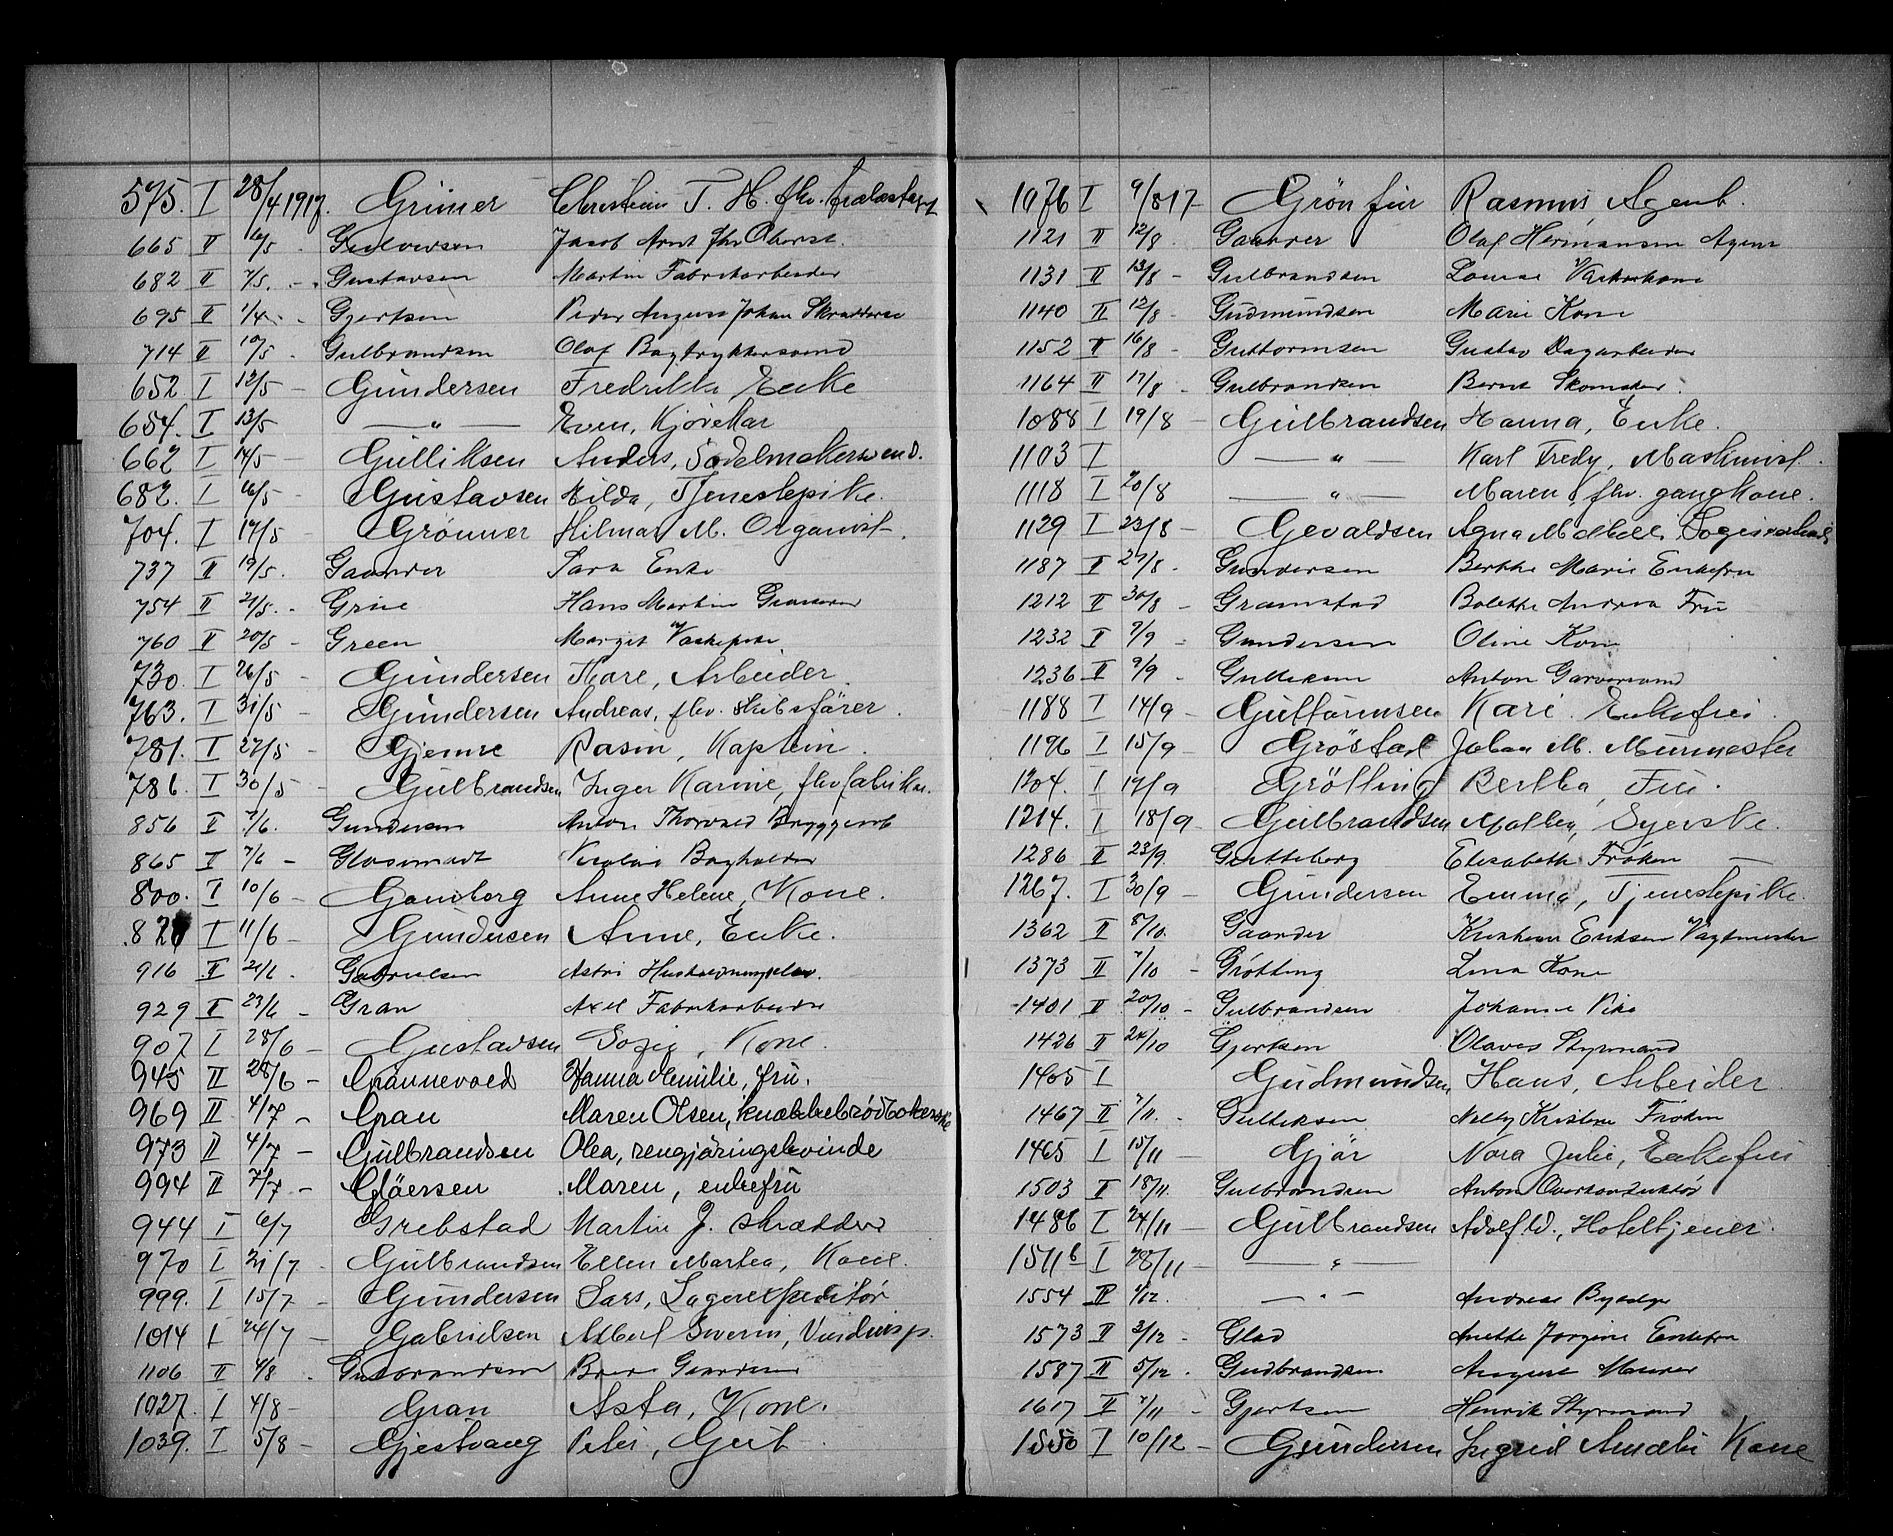 575. I 28/4 1917. Grüner Christian T. H. fhv.
665 II 6/5 - Jacob Arnt fhv Oberst.
682 II 7/5. - Gustavsen Martin Fabrikarbeider
695 II 1/4 - Gjertsen Peder August Johan
714 II 10/5 - Gulbrandsen Olaf Bogtrykkersvend
652 I 12/5 - Gundersen Fredrikke Enke
654. I 13/5 — " — Even, Kjørekar
662 I 14/5 - Gulliksen Anders, Sadelmakersvend.
682. I 16/5 - Gustavsen Hilda, Tjenestepike.
704. I 17/5 - Grønner Hilmar M. Organist.
737 II 19/5. Gaarder Sara Enke
754 II 21/5. - Grue Hans Martin
760 II 20/5 - Green Margit Vaskepike
730. I 26/5 - Gundersen Kare, Arbeider.
763. I 31/5 - Gundersen Andreas, fhv. skibsfører.
781. I 27/5 - Gjemre Rasm, Kaptein.
786. I 30/5 - Gulbrandsen Inger Karine, fhv fabrikar.
856 II 7/6. Gundersen Anton Thorvald
865 II 7/6 - Nicolai Bogholder
800. I 10/6 - Gamborg Anne Helene, Kone.
I 11/6 - Gundersen Anne, Enke.
916 II 21/6. Gabrielsen Astri
929 II 23/6 - Gran Axel Fabrikarbeider
907 I 28/6 - Gustavsen Sofie, Kone.
945 II 28/6 - Grannevold Hanna Emilie, fru.
969 II 4/7 - Gran Maren Olsen, knækkebrødbakerske
973 II 4/7 - Gulbrandsen Olea, rengjøringskvinde
994 II 7/7 - Gløersen Maren, enkefru
944 I 6/7 Grebstad Martin J. skrædder
970 I 21/7 - Gulbrandsen Ellen Martea, Kone.
999. I 15/7 - Gundersen Lars, Lagerexpeditør
1014 I 24/7 - Gabrielsen Albert Severin,
1106 II 4/8. Gulbrandsen
1027. I 4/8 - Gran Asta, Kone.
1039. I 5/8 - Gjestvang Peter, Gut.
1076 I 9/8 17 - Rasmus, Agent.
1121 II 12/8. Gaarder Olaf Hermansen Agent
1131 II 13/8 - Gulbrandsen Louise Vaskerkone
1140 II 12/8 - Gudmundsen Marie Kone
1152 II 16/8 - Guttormsen Gustav Dagarbeider
1164 II 17/8 - Gulbrandsen Bernt Skomaker.
1088 I 19/8 - Gulbrandsen Hanna, Enke.
1103 I — " — Karl Fredy, Maskinist.
1118 I 20/8 — " — Maren, fhv. gangkone.
1129 I 23/8 - Gevaldsen
1187 II 27/8 - Gundersen Berthe Marie Enkefru
1212 II 30/8 - Gramstad Bolette Andrea Fru
1232 II 9/9 - Gundersen Oline Kone
1236 II 9/9 - Gulliksen Anton Garversvend
1188 I 14/9 - Guttormsen Kari. Enkefru.
1196 I 15/9 - Grøstad Johan M. Murmester
1204. I 17/9 Grøtting Bertha, Fru.
1214. I 18/9 - Gulbrandsen Mathea, Syerske.
1286 II 23/9. Gutteberg Elisabeth Frøken —
1267. I 30/9 - Gundersen Emma, Tjenestepike.
1362 II 8/10. Gaarder Kristian Eriksen Vagtmester
1373 II 7/10 - Grøtting Lina Kone
1401 II 20/10 - Gulbrandsen Johanne Pike
1426 II 24/10 Gjertsen Olaves Styrmand
1405 I Gudmundsen, Hans, Arbeider.
1467 II 7/11. - Gulliksen Nelly Kristine Frøken
1465 I 15/11 - Gjør Nora Julie, Enkefru
1503 II 18/11. Gulbrandsen Anton Overkonduktør
1486 I 24/11 - Gulbrandsen Adolf W., Hoteltjener.
1511b I 28/11 - — " —
1554 II 1/12. — " — Andreas
1573 II 3/12 - Glad Anette Jørgine Enkefru
1587 II 5/12. Gudbrandsen August Murer
1617 II 7/11 - Gjertsen Henrik Styrmand
1550 I 10/12 - Gundersen Ingrid Amalie Kone